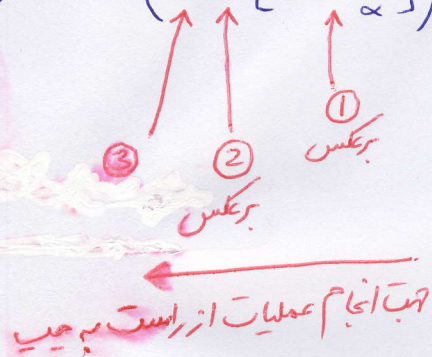 ( [ α ] )
③ ② ①
برعکس
برعکس
جهت انجام عملیات از راست به چپ